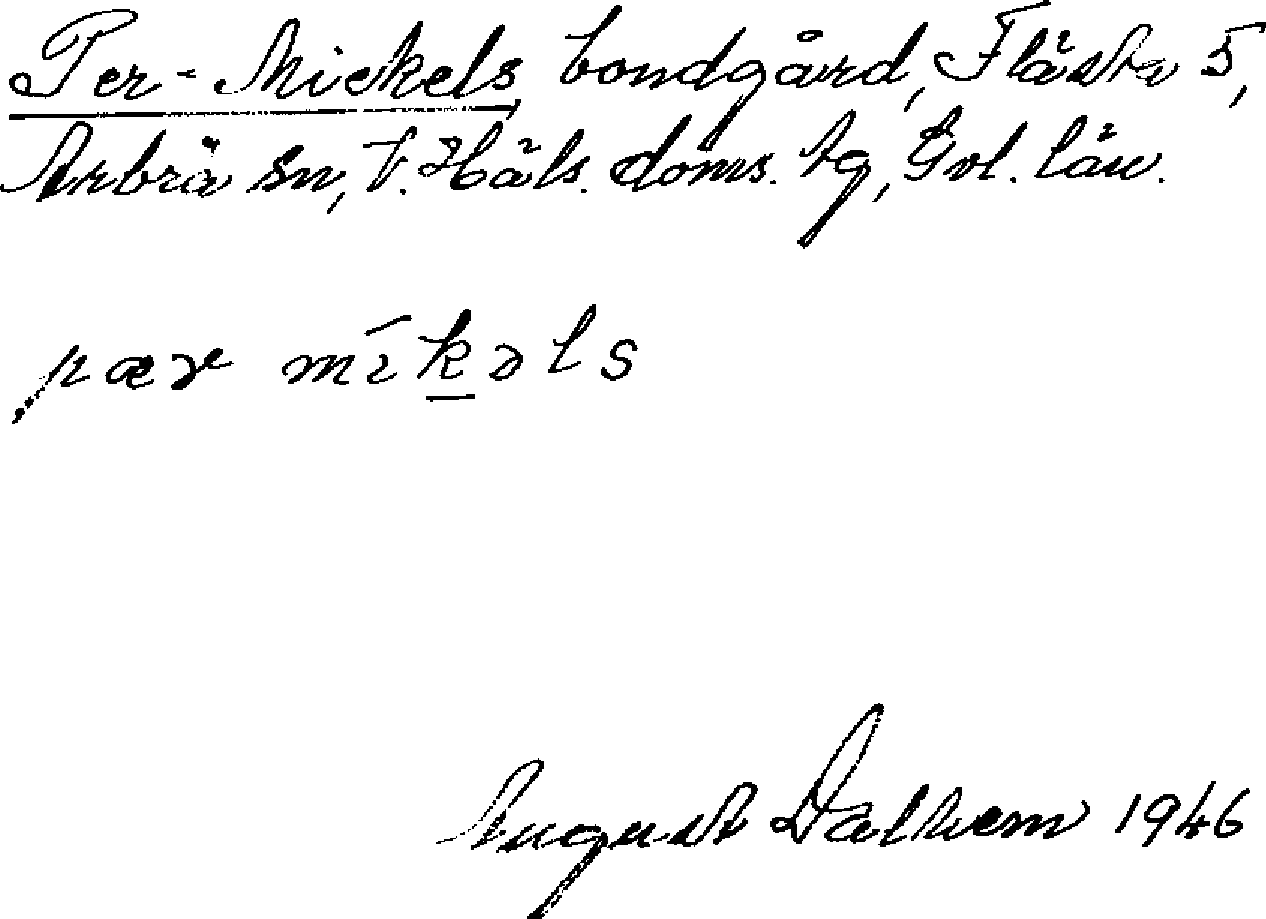 Per-Mickels bondgård, Flästa 5,
Arbrä sn, V. Häls. doms. tg, Gvl. län.
pær mík̠əls
August Dalhem 1946